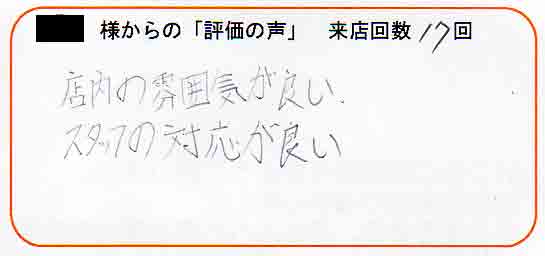 様からの「評価の声」 来店回数 17回
店内の雰囲気が良い.
スタッフの対応が良い